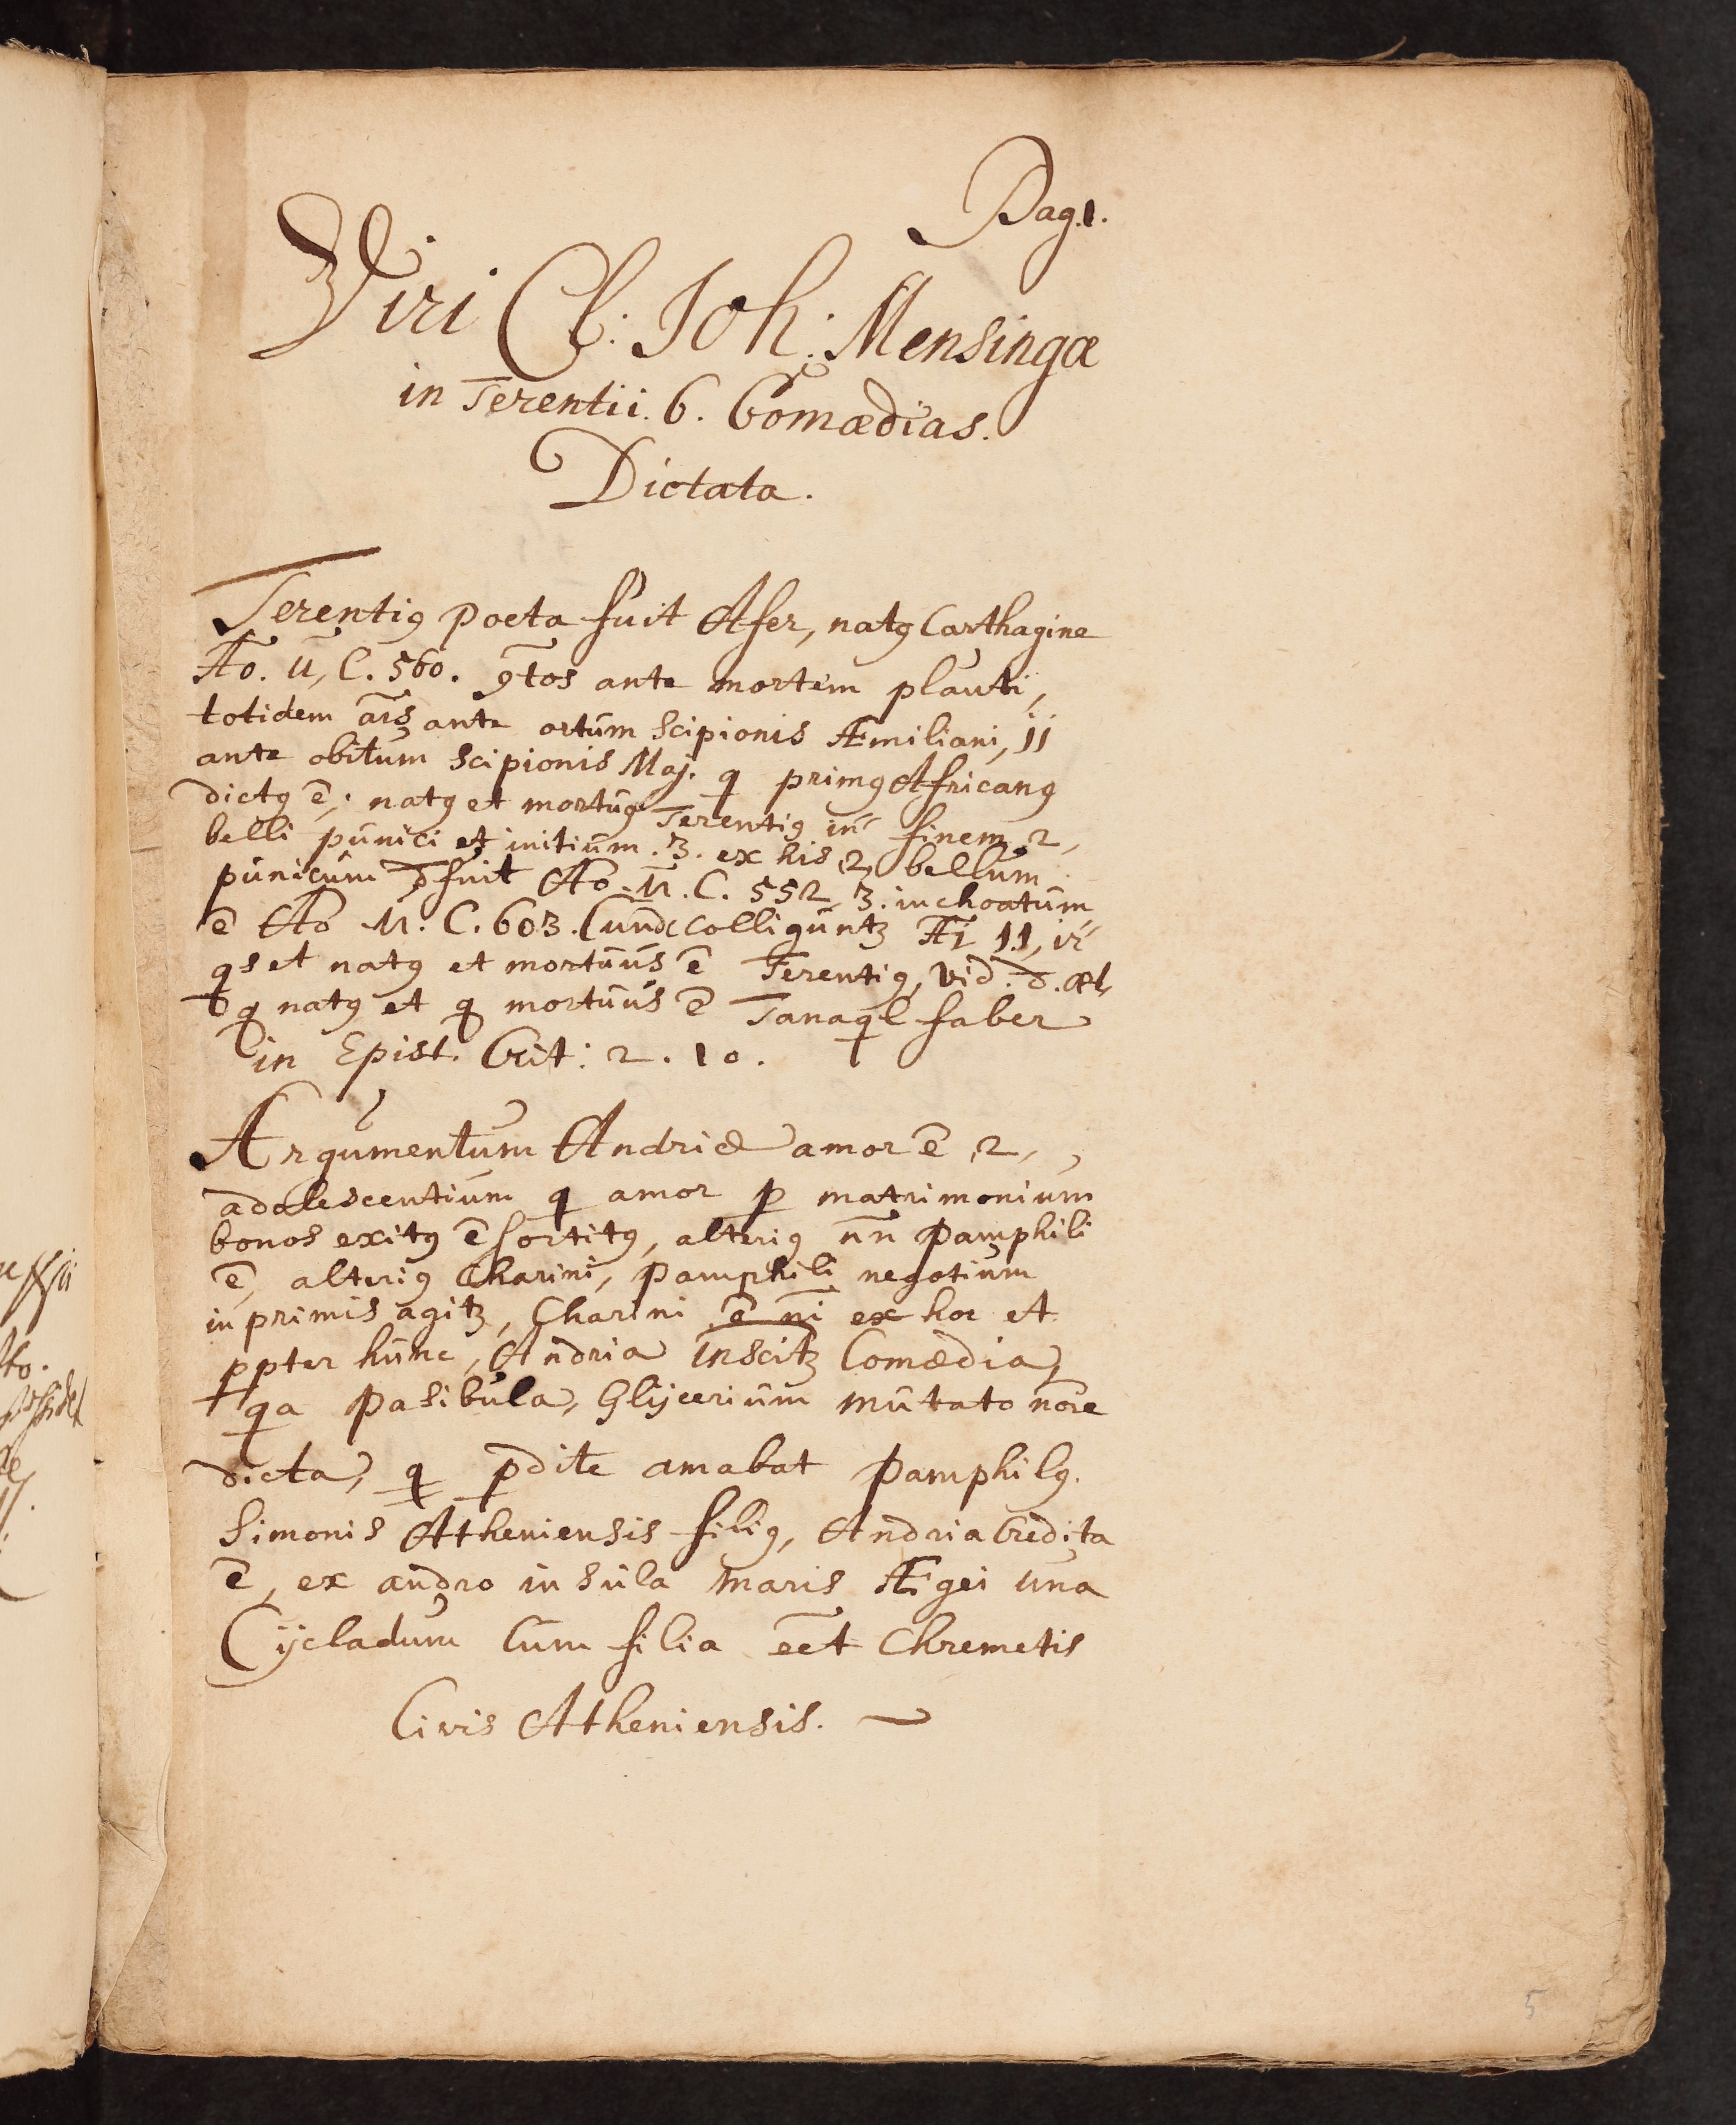 Pag. 1.
Viri Cl: Joh: Mensingæ
in Terentii. 6. Comædias.
Dictata.
Terentiꝰ poeta fuit Afer, natꝰ Carthagine
Ao. U, C. 560. ante mortem plauti,
totidem ante ortum Scipionis Æmiliani, 11
ante obitum Scipionis Maj. q primꝰ Africanꝰ
dictꝰ ē, natꝰ et mortuꝰ Terentiꝰ in finem 2,
belli punici et initium. 3. ex his 2, bellum
punicum fuit Ao. U. C. 552, 3. inchoatum
ē Ao U. C. 603. Cunde colligunt 11,
qs et natꝰ et mortuus ē Terentiꝰ, vid.
q natꝰ et q mortuus ē Tanaql faber
in Epist. Crit: 2. 10.
Argumentum Andriæ amor ē 2,
adolescentium q amor ꝑ matrimonium
bonos exitꝰ ē sortitꝰ, alteriꝰ Pamphili
ē, alteriꝰ Charini, Pamphili negotium
in primis agit, Charini ē ni ex hoc et
ppter hunc, Andria inscit Comædia,
qa Pasibula, Glijcerium mutato nōre
dicta, q ꝑdite amabat Pamphilꝰ.
Simonis Atheniensis filiꝰ, Andria Credita
ē, ex andro insula maris Ægei una
Cijcladum Cum filia eēt Chremetis
Civis Atheniensis.
5